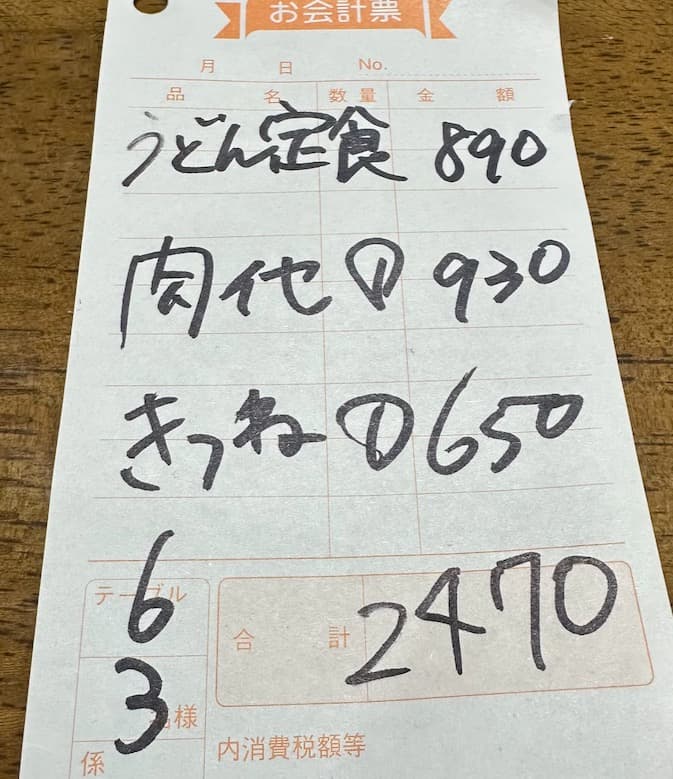 お会計票
月 日 No.
品 名 数量 金 額
うどん定食 890
肉イセ ① 930
きつね ① 650
テーブル 6
合 計 2470
3 名様
係
内消費税額等